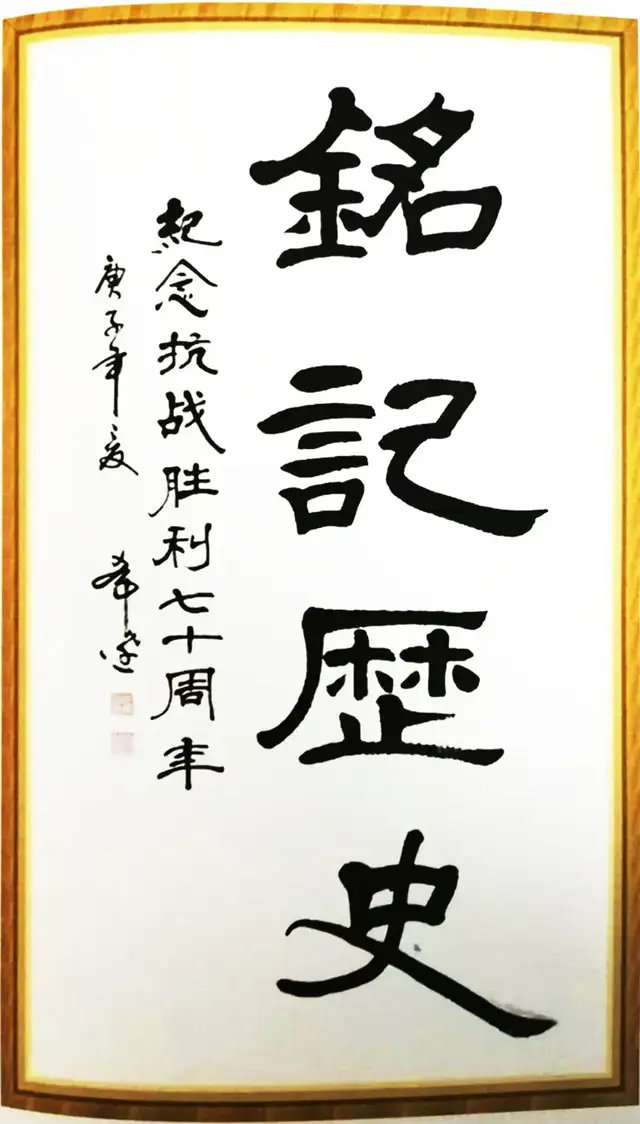 銘記歷史
紀念抗战胜利七十周年
庚子年夏